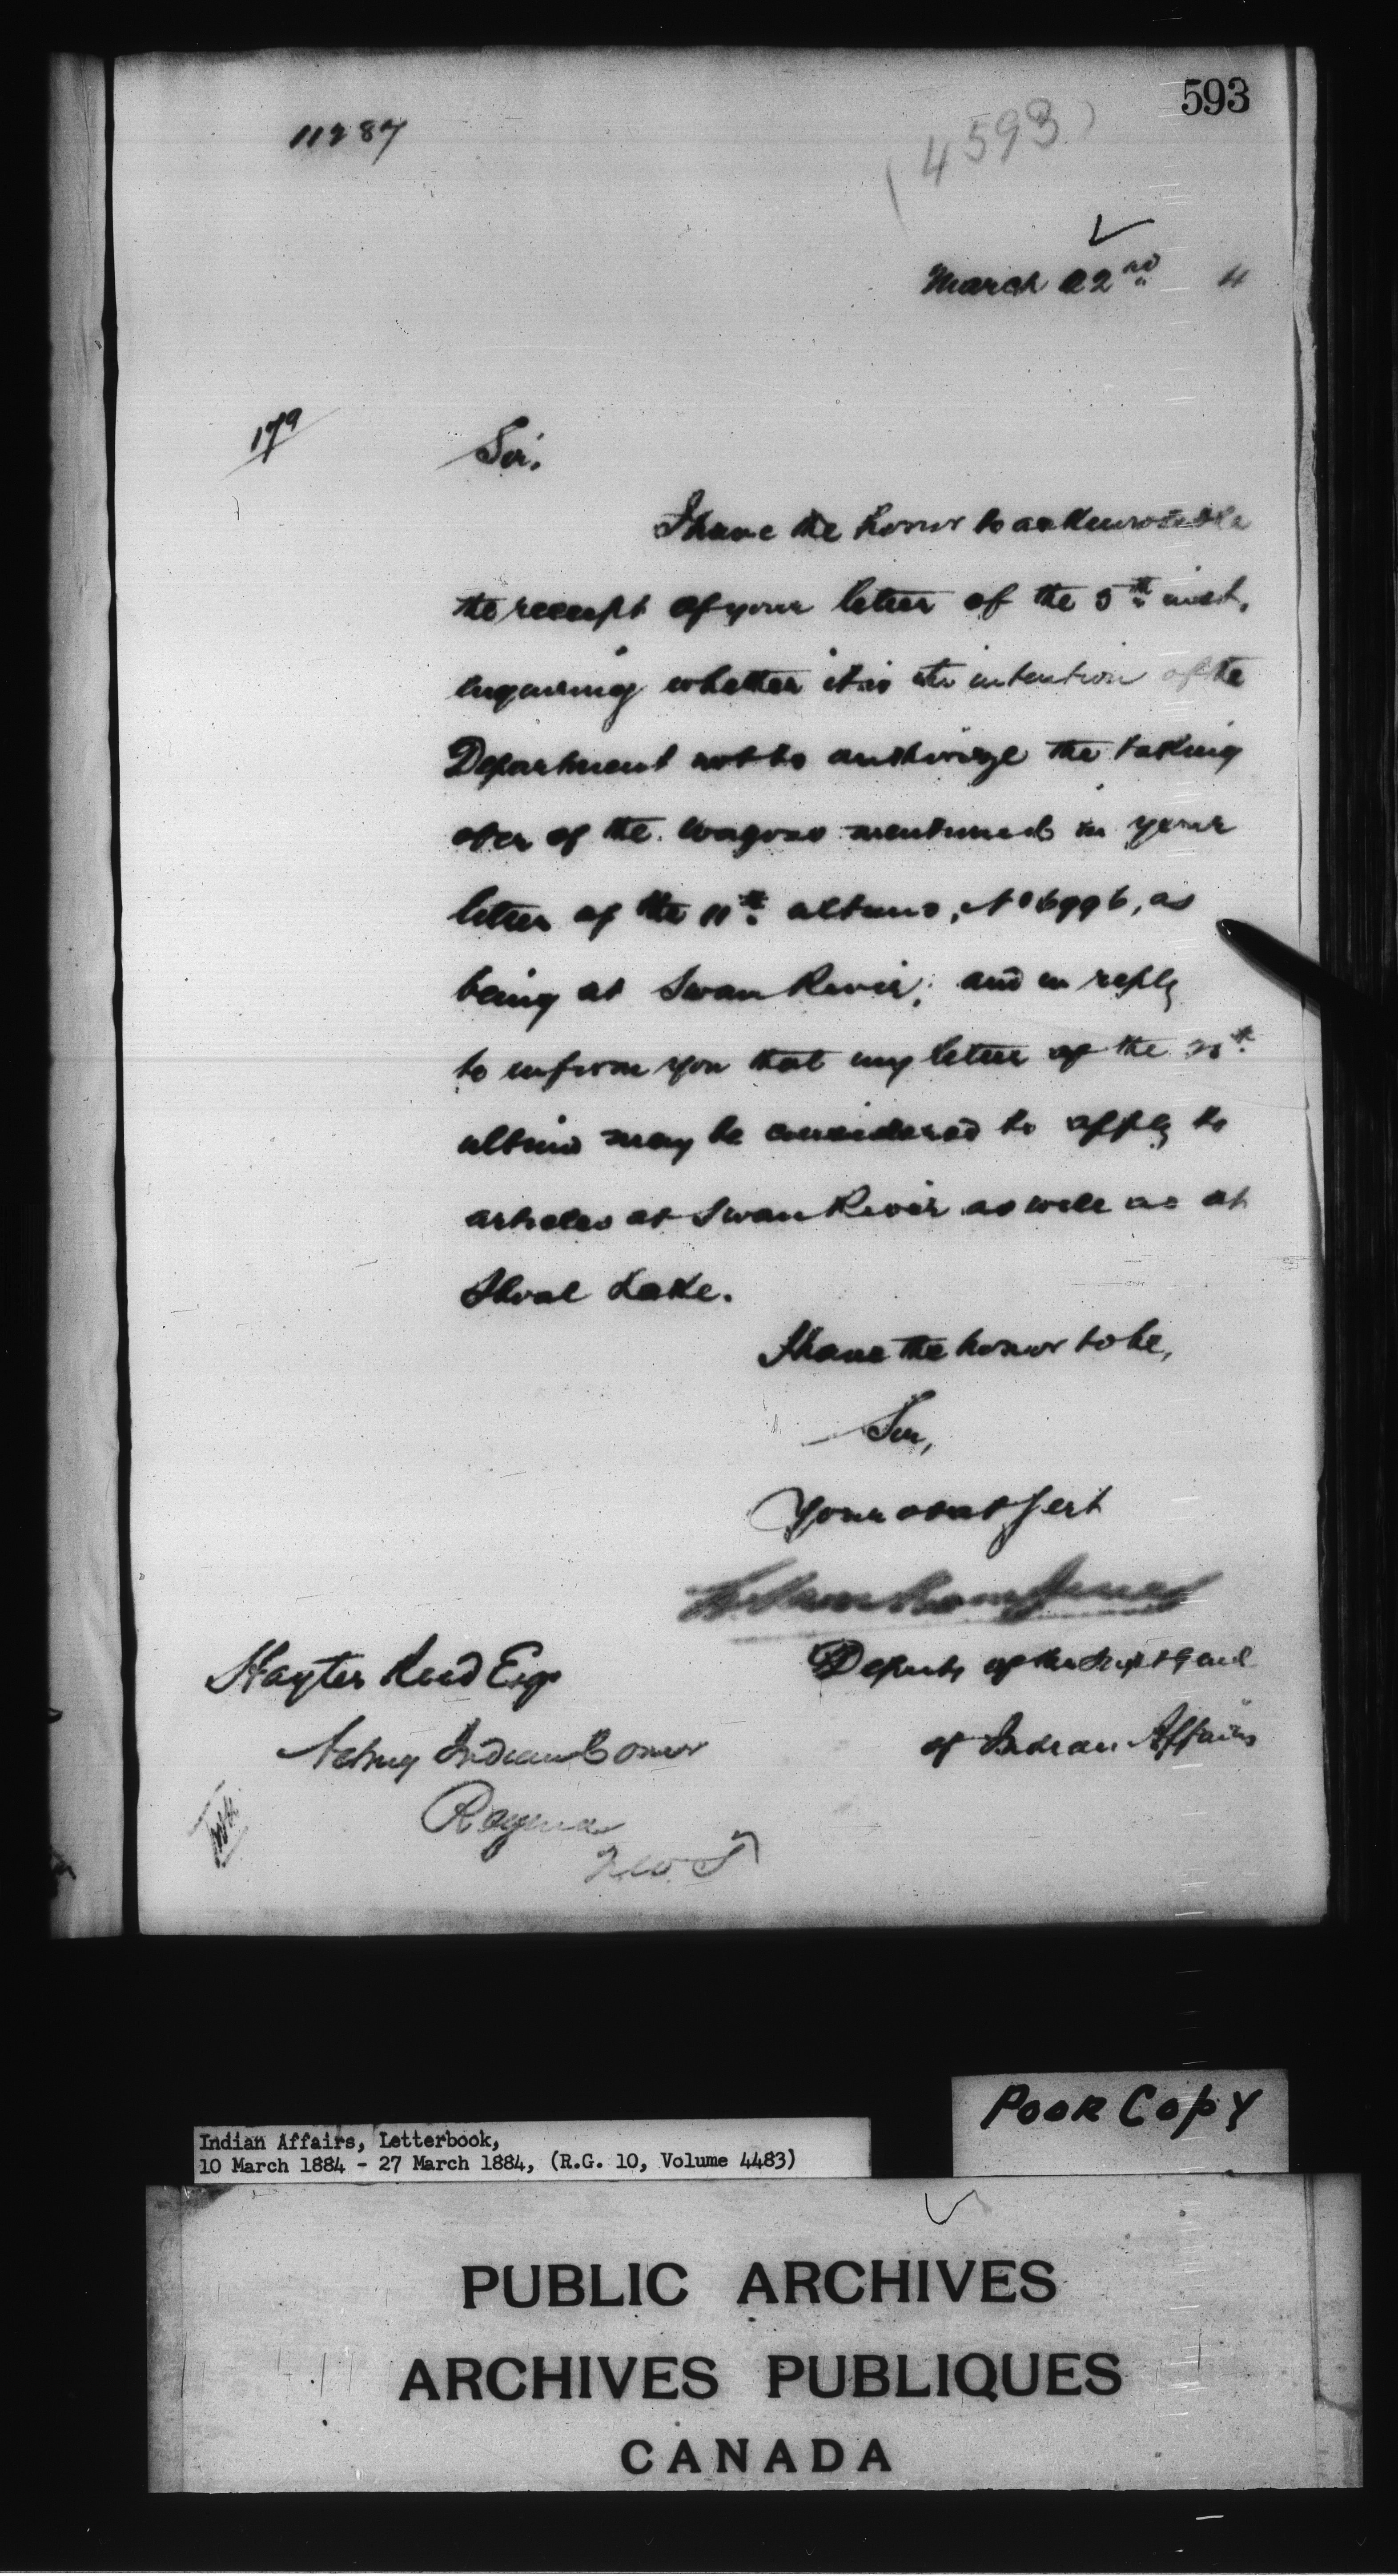 593
11287
(4593)
March 22nd 4
179
Sir,
I have the honor to acknowledge
the receipt of your letter of the 5th inst,
enquiring whether it is the intention of the
Department not to authorize the taking
over of the wagons mentioned in your
letter of the 11th ultimo, No 6996, as
being at Swan River; and in reply
to inform you that my letter of the
ultimo may be considered to apply to
articles at Swan River as well as at
Shoal Lake.
I have the honor to be,
Sir,
Your obedt Servt
Deputy of the Supt Genl
of Indian Affairs
Hayter Reed Esq
Acting Indian Comr
Regina
N.W.T
Poor Copy
Indian Affairs, Letterbook,
10 March 1884 - 27 March 1884, (R.G. 10, Volume 4483)
PUBLIC ARCHIVES
ARCHIVES PUBLIQUES
CANADA